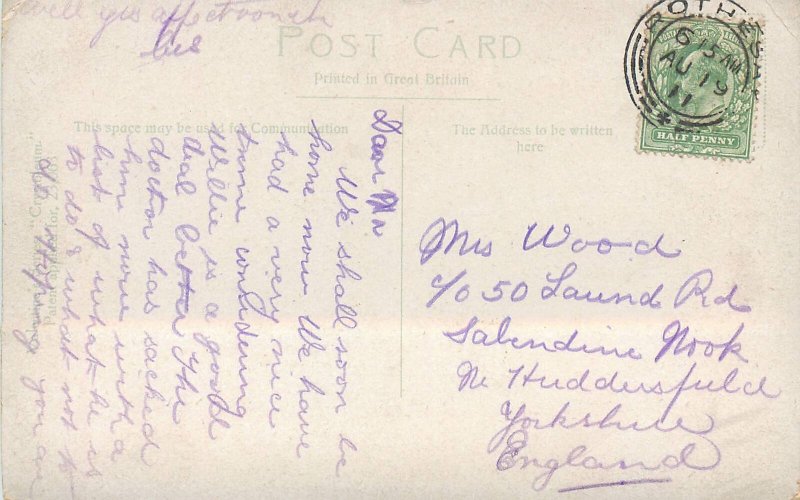 POST CARD
Printed in Great Britain
This space may be used for Communication
The Address to be written
here
ROTHESAY
6 15 AM
AU 19
11
HALF PENNY
Mrs Wood
c/o 50 Laund Rd
Salendine Nook
Nr Huddersfield
Yorkshire
England
Dear
We shall soon be
home now We have
had a very nice
time considering
Willie is a good
deal better The
doctor has sacked
him now with a
list of what he is
to do & what not to
you are
well yrs affectionately